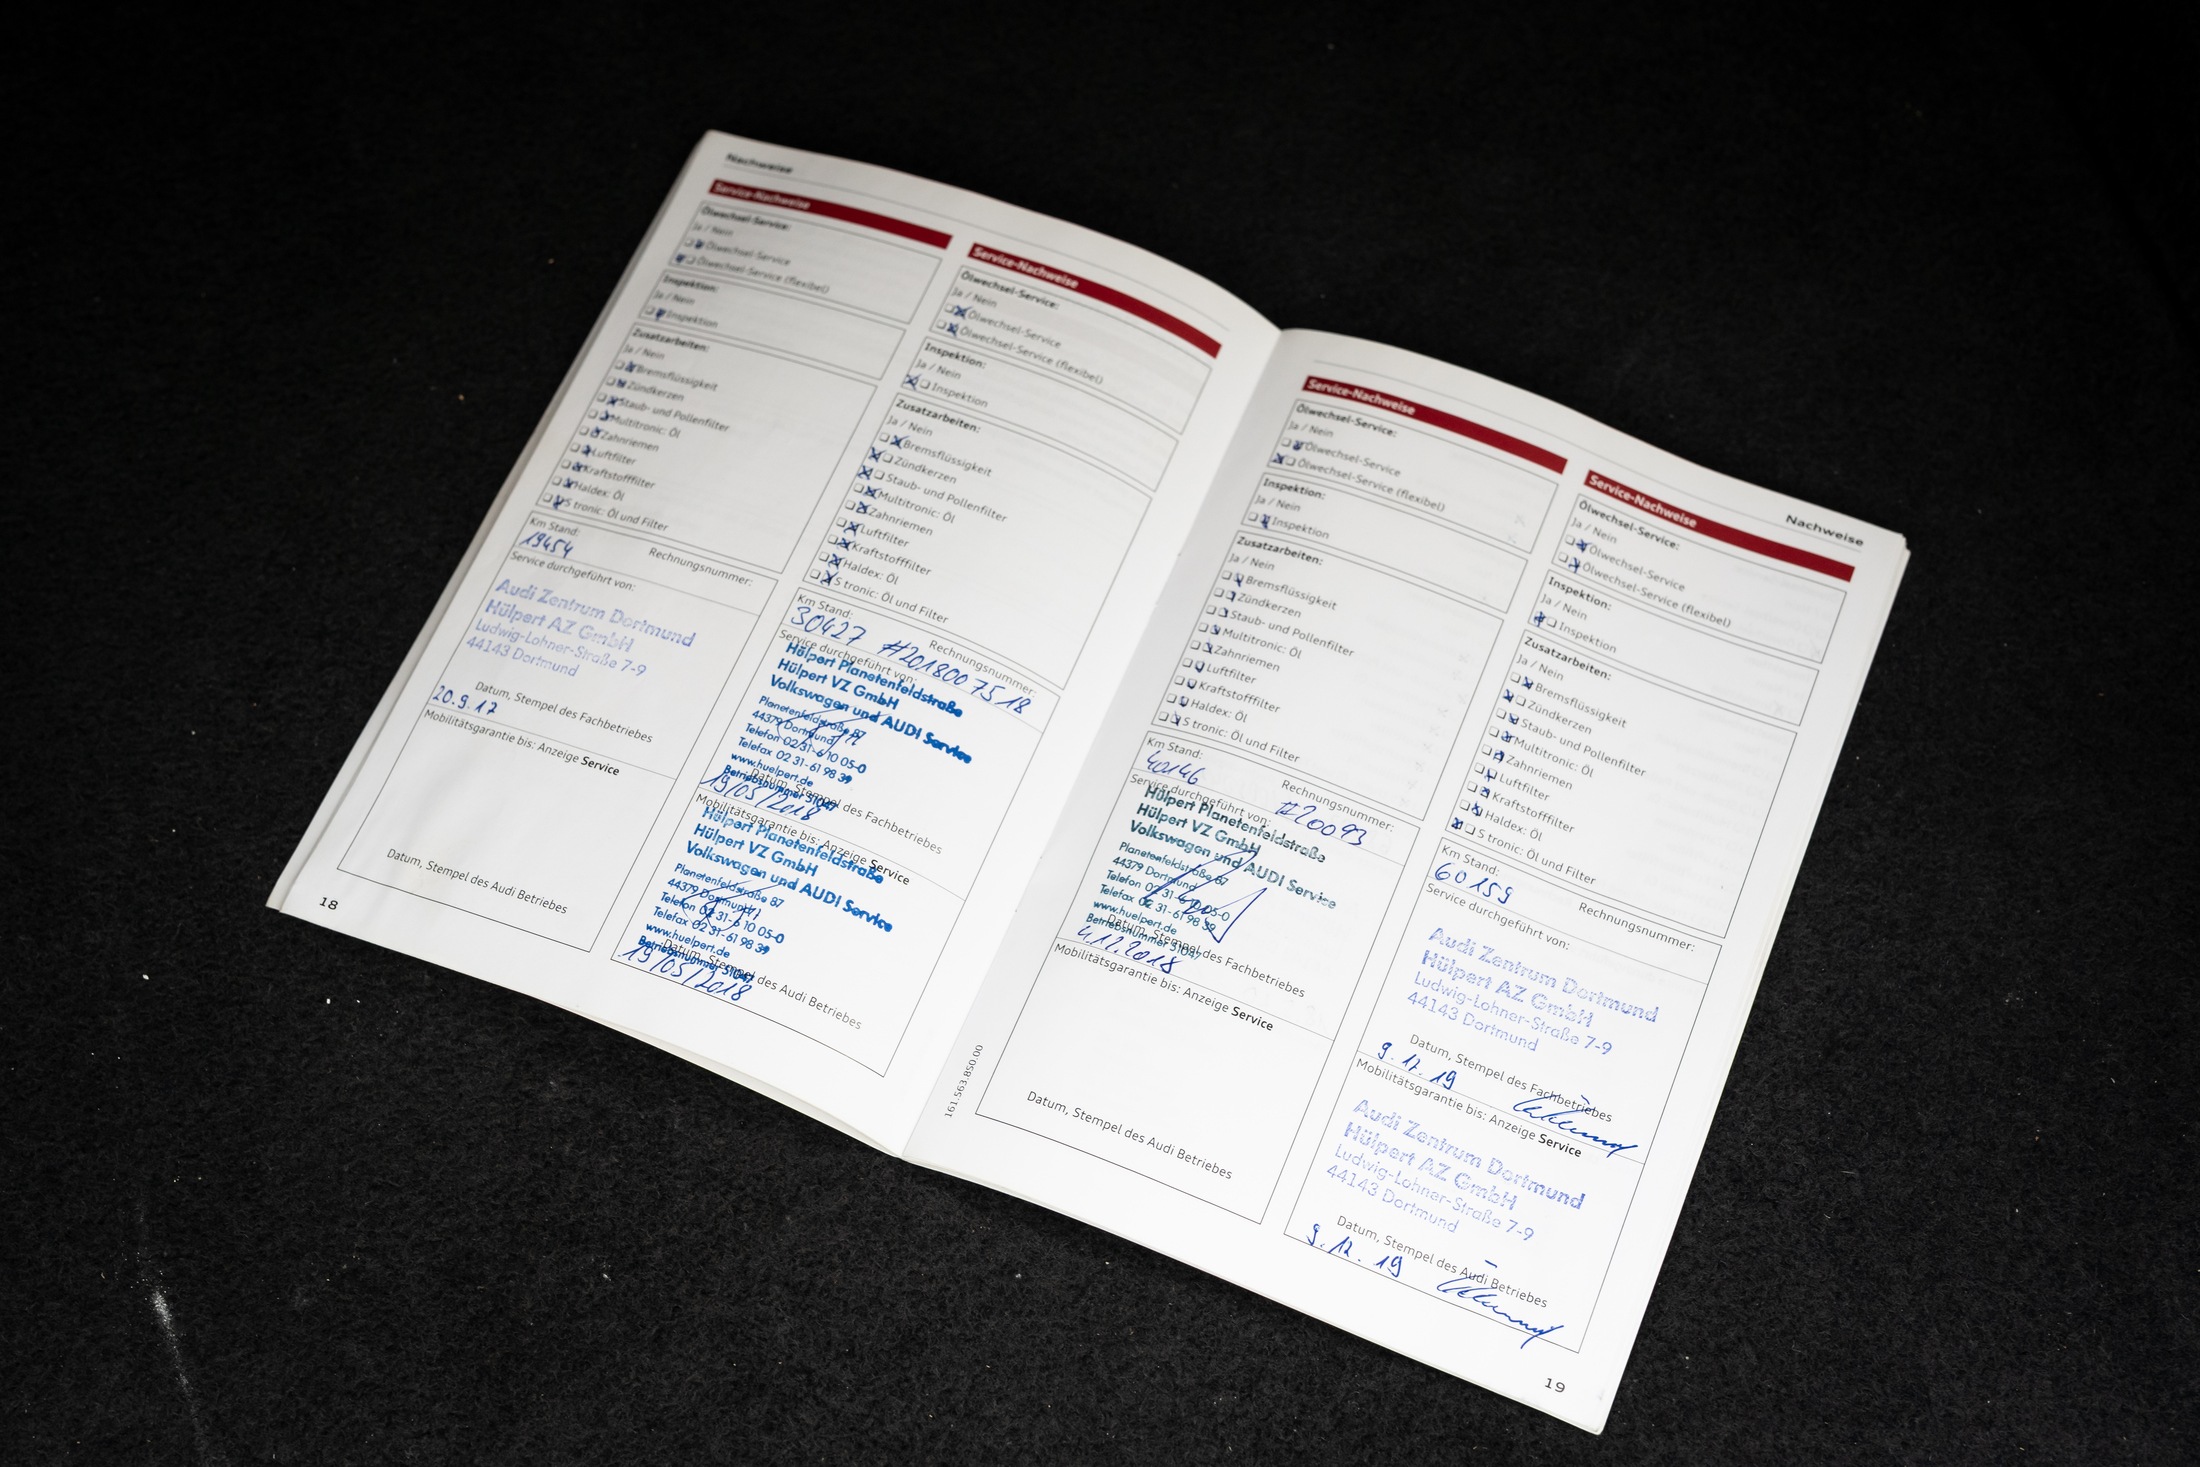 Nachweise
Service-Nachweise
Ölwechsel-Service:
Ja / Nein
Ölwechsel-Service
Ölwechsel-Service (flexibel)
Inspektion:
Ja / Nein
Inspektion
Zusatzarbeiten:
Ja / Nein
Bremsflüssigkeit
Zündkerzen
Staub- und Pollenfilter
Multitronic: Öl
Zahnriemen
Luftfilter
Kraftstofffilter
Haldex: Öl
S tronic: Öl und Filter
Km Stand:
Rechnungsnummer:
19454
Service durchgeführt von:
Audi Zentrum Dortmund
Hülpert AZ GmbH
Ludwig-Lohner-Straße 7-9
44143 Dortmund
Datum, Stempel des Fachbetriebes
20.9.17
Mobilitätsgarantie bis: Anzeige Service
Datum, Stempel des Audi Betriebes
18
Service-Nachweise
Ölwechsel-Service:
Ja / Nein
Ölwechsel-Service
Ölwechsel-Service (flexibel)
Inspektion:
Ja / Nein
Inspektion
Zusatzarbeiten:
Ja / Nein
Bremsflüssigkeit
Zündkerzen
Staub- und Pollenfilter
Multitronic: Öl
Zahnriemen
Luftfilter
Kraftstofffilter
Haldex: Öl
S tronic: Öl und Filter
Km Stand:
Rechnungsnummer:
30427 #2018007518
Service durchgeführt von:
Hülpert Planetenfeldstraße
Hülpert VZ GmbH
Volkswagen und AUDI Service
Planetenfeldstraße 87
44379 Dortmund
Telefon 02 31-6 10 05-0
Telefax 02 31-61 98 39
www.huelpert.de
Betriebsnummer 31047
Datum, Stempel des Fachbetriebes
19/05/2018
Mobilitätsgarantie bis: Anzeige Service
Hülpert Planetenfeldstraße
Hülpert VZ GmbH
Volkswagen und AUDI Service
Planetenfeldstraße 87
44379 Dortmund
Telefon 02 31-6 10 05-0
Telefax 02 31-61 98 39
www.huelpert.de
Betriebsnummer 31047
Datum, Stempel des Audi Betriebes
19/05/2018
161.563.850.00
Service-Nachweise
Ölwechsel-Service:
Ja / Nein
Ölwechsel-Service
Ölwechsel-Service (flexibel)
Inspektion:
Ja / Nein
Inspektion
Zusatzarbeiten:
Ja / Nein
Bremsflüssigkeit
Zündkerzen
Staub- und Pollenfilter
Multitronic: Öl
Zahnriemen
Luftfilter
Kraftstofffilter
Haldex: Öl
S tronic: Öl und Filter
Km Stand:
Rechnungsnummer:
40146
#20093
Service durchgeführt von:
Hülpert Planetenfeldstraße
Hülpert VZ GmbH
Volkswagen und AUDI Service
Planetenfeldstraße 87
44379 Dortmund
Telefon 02 31-6 10 05-0
Telefax 02 31-61 98 39
www.huelpert.de
Betriebsnummer 31047
Datum, Stempel des Fachbetriebes
4.12.2018
Mobilitätsgarantie bis: Anzeige Service
Datum, Stempel des Audi Betriebes
Nachweise
Service-Nachweise
Ölwechsel-Service:
Ja / Nein
Ölwechsel-Service
Ölwechsel-Service (flexibel)
Inspektion:
Ja / Nein
Inspektion
Zusatzarbeiten:
Ja / Nein
Bremsflüssigkeit
Zündkerzen
Staub- und Pollenfilter
Multitronic: Öl
Zahnriemen
Luftfilter
Kraftstofffilter
Haldex: Öl
S tronic: Öl und Filter
Km Stand:
Rechnungsnummer:
60159
Service durchgeführt von:
Audi Zentrum Dortmund
Hülpert AZ GmbH
Ludwig-Lohner-Straße 7-9
44143 Dortmund
Datum, Stempel des Fachbetriebes
9.12.19
Mobilitätsgarantie bis: Anzeige Service
Audi Zentrum Dortmund
Hülpert AZ GmbH
Ludwig-Lohner-Straße 7-9
44143 Dortmund
Datum, Stempel des Audi Betriebes
9.12.19
19